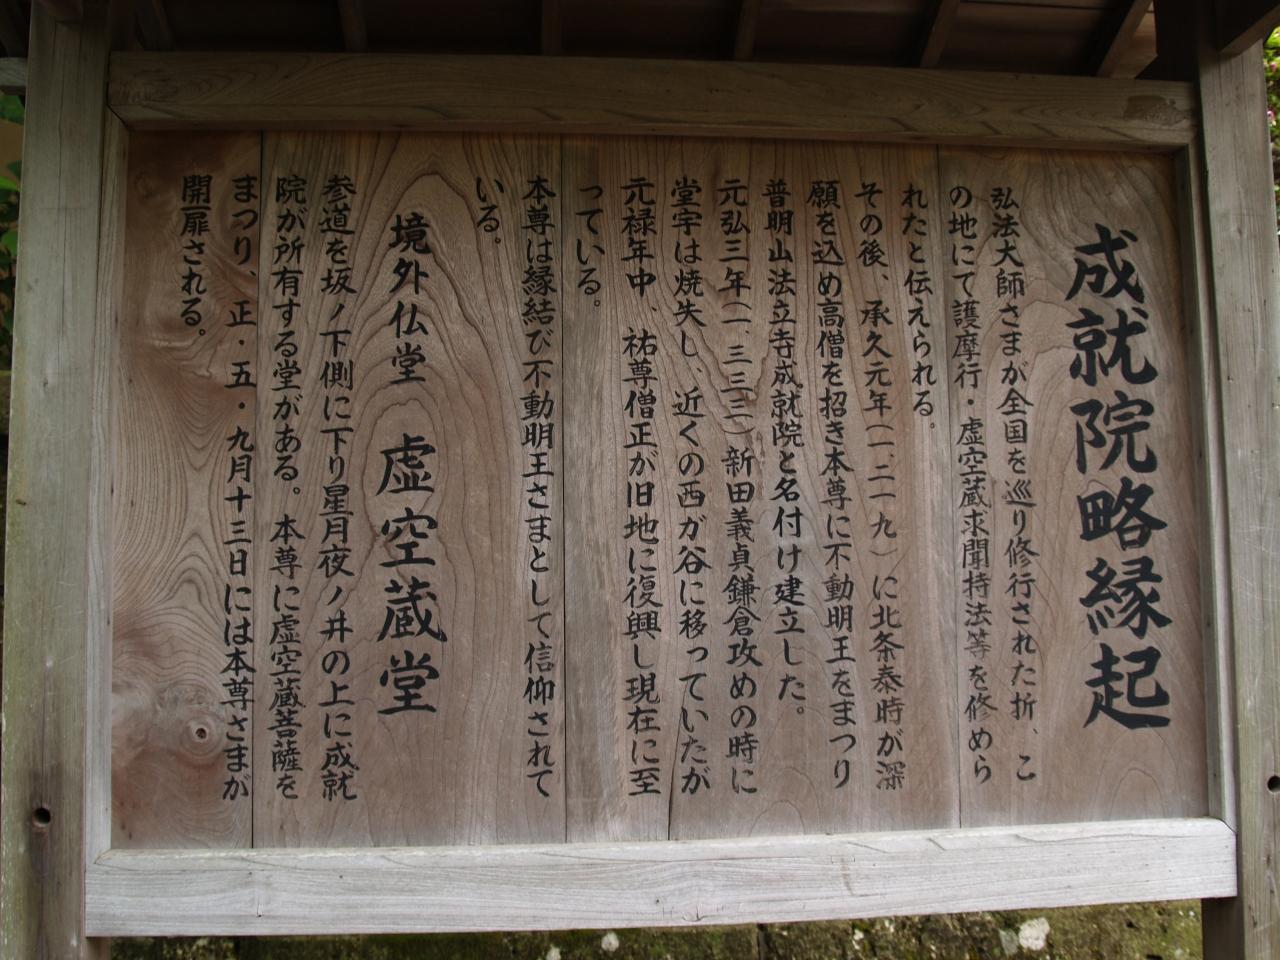 成就院略縁起
弘法大師さまが全国を巡り修行された折、こ
の地にて護摩行・虚空蔵求聞持法等を修めら
れたと伝えられる。
その後、承久元年(一、二一九)に北条泰時が深
願を込め高僧を招き本尊に不動明王をまつり
普明山法立寺成就院と名付け建立した。
元弘三年(一、三三三)新田義貞鎌倉攻めの時に
堂宇は焼失し、近くの西が谷に移っていたが
元禄年中、祐尊僧正が旧地に復興し現在に至
っている。
本尊は縁結び不動明王さまとして信仰されて
いる。
境外仏堂 虚空蔵堂
参道を坂ノ下側に下り星月夜ノ井の上に成就
院が所有する堂がある。本尊に虚空蔵菩薩を
まつり、正・五・九月十三日には本尊さまが
開扉される。